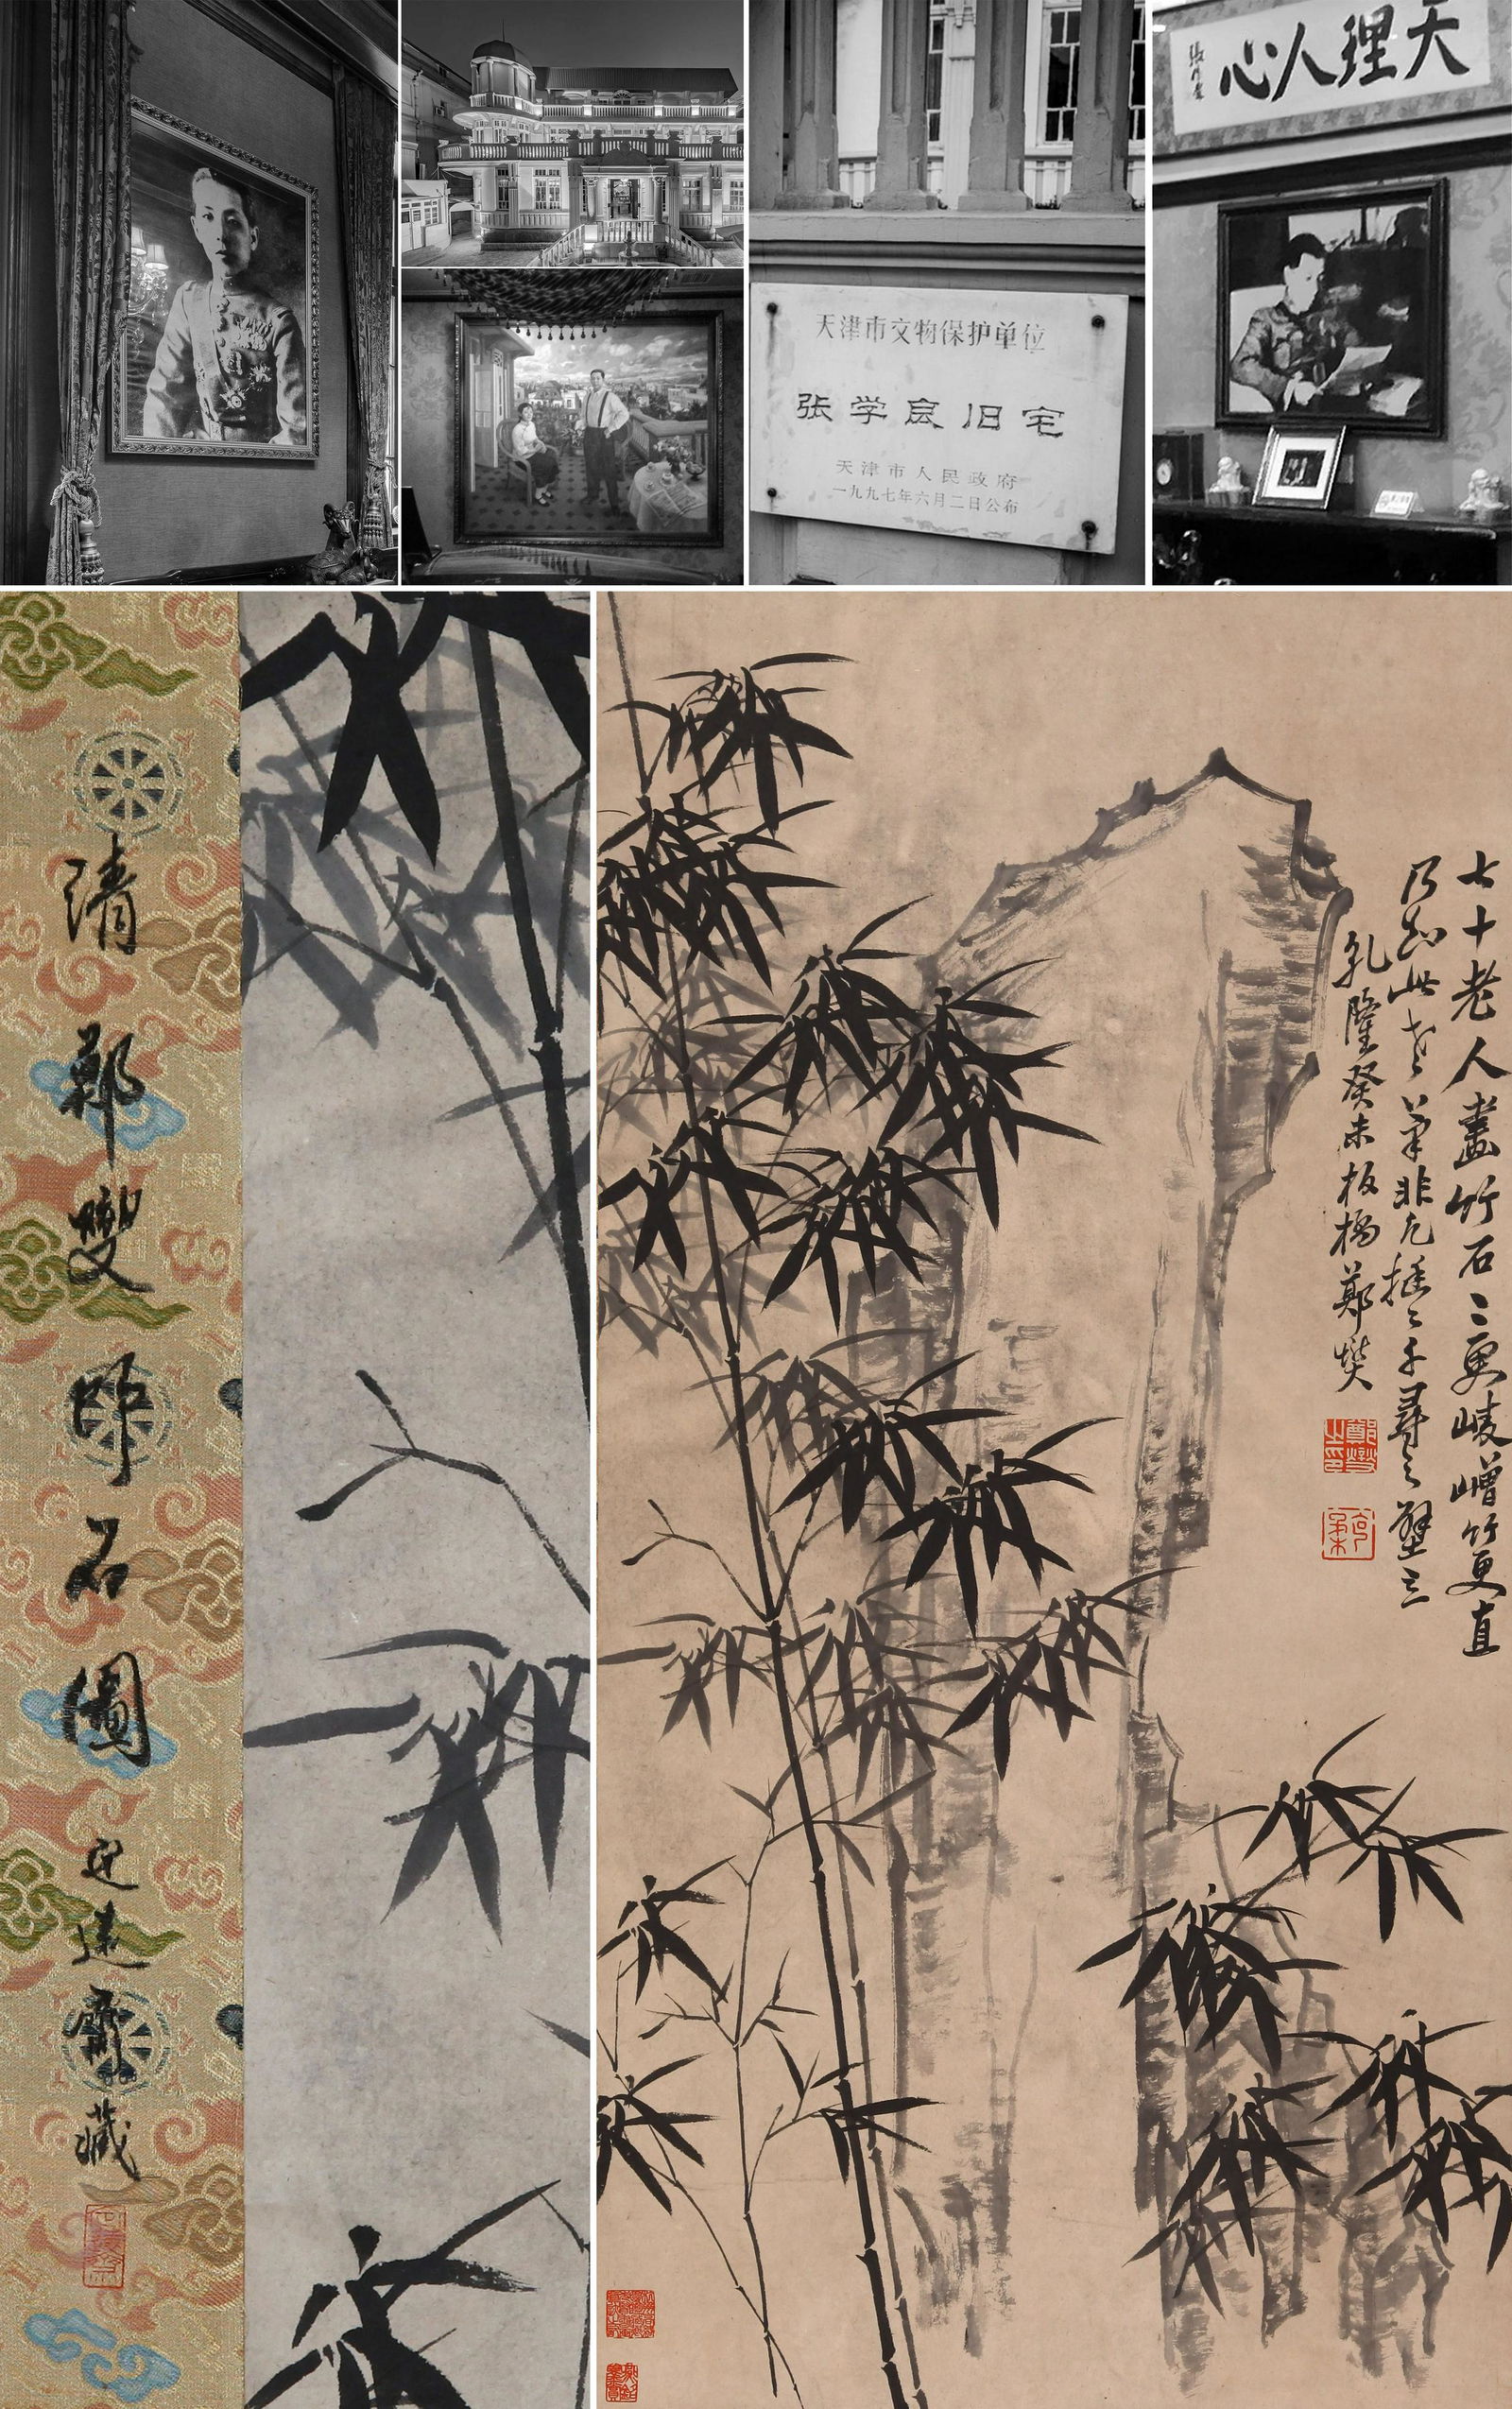 天理人心
天津市文物保护单位
张学良旧宅
天津市人民政府
一九九七年六月二日公布
七十老人畫竹石二更崚嶒竹更直
乃知此老筆非凡挺二千尋之壁立
乾隆癸未板橋鄭燮
鄭燮之印
清鄭燮竹石圖
定遠齋藏